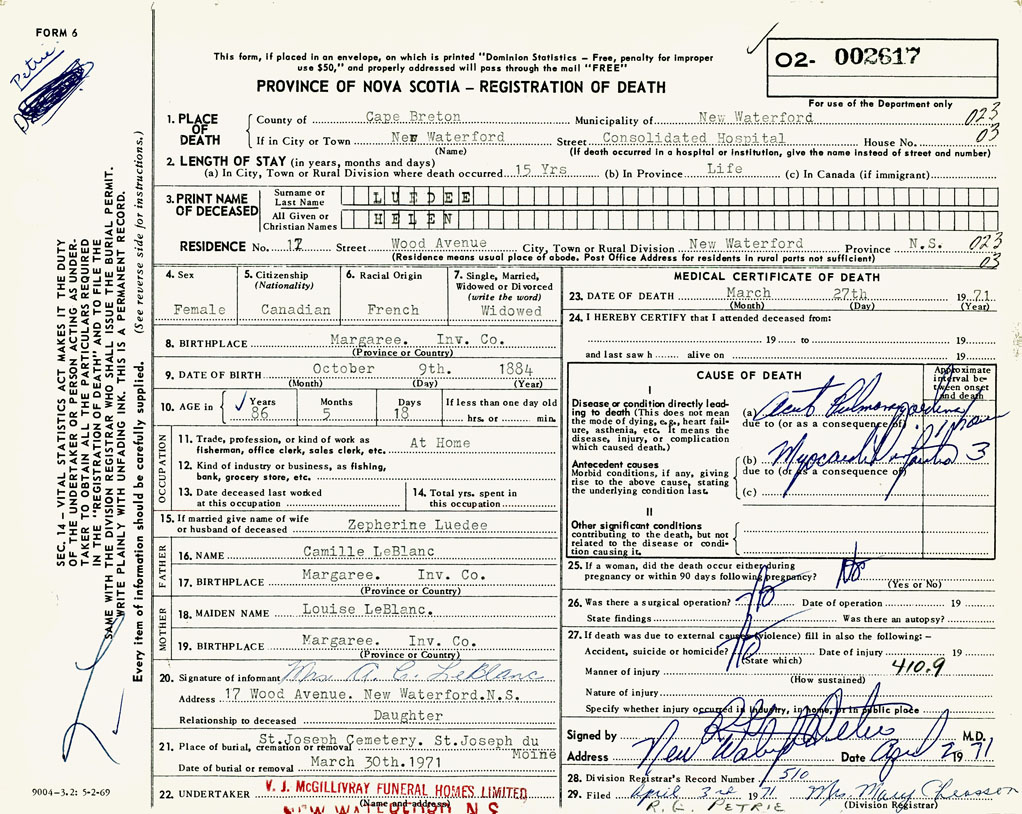 FORM 6
Petrie
This form, if placed in an envelope, on which is printed "Dominion Statistics – Free, penalty for improper
use $50," and properly addressed will pass through the mail "FREE"
PROVINCE OF NOVA SCOTIA – REGISTRATION OF DEATH
02- 002617
For use of the Department only
1. PLACE OF DEATH
County of Cape Breton Municipality of New Waterford 023
If in City or Town New Waterford Street Consolidated Hospital House No. 03
(Name) (If death occurred in a hospital or institution, give the name instead of street and number)
2. LENGTH OF STAY (in years, months and days)
(a) In City, Town or Rural Division where death occurred 15 Yrs (b) In Province Life (c) In Canada (if immigrant)
3. PRINT NAME OF DECEASED
Surname or Last Name LUEDEE
All Given or Christian Names HELEN
RESIDENCE No. 17 Street Wood Avenue City, Town or Rural Division New Waterford Province N.S. 023
(Residence means usual place of abode. Post Office Address for residents in rural parts not sufficient) 03
4. Sex
Female
5. Citizenship
(Nationality)
Canadian
6. Racial Origin
French
7. Single, Married,
Widowed or Divorced
(write the word)
Widowed
8. BIRTHPLACE Margaree. Inv. Co.
(Province or Country)
9. DATE OF BIRTH October 9th. 1884
(Month) (Day) (Year)
10. AGE in Years Months Days If less than one day old
86 5 18 hrs. or min.
OCCUPATION
11. Trade, profession, or kind of work as
fisherman, office clerk, sales clerk, etc. At Home
12. Kind of industry or business, as fishing,
bank, grocery store, etc.
13. Date deceased last worked
at this occupation
14. Total yrs. spent in
this occupation
15. If married give name of wife
or husband of deceased Zepherine Luedee
FATHER
16. NAME Camille LeBlanc
17. BIRTHPLACE Margaree. Inv. Co.
(Province or Country)
MOTHER
18. MAIDEN NAME Louise LeBlanc.
19. BIRTHPLACE Margaree. Inv. Co.
(Province or Country)
20. Signature of informant Mrs A. C. LeBlanc
Address 17 Wood Avenue. New Waterford.N.S.
Relationship to deceased Daughter
21. Place of burial, cremation or removal St.Joseph Cemetery. St.Joseph du
Moine
Date of burial or removal March 30th.1971
22. UNDERTAKER V. J. McGILLIVRAY FUNERAL HOMES LIMITED
(Name and address)
NEW WATERFORD N.S.
MEDICAL CERTIFICATE OF DEATH
23. DATE OF DEATH March 27th 1971
(Month) (Day) (Year)
24. I HEREBY CERTIFY that I attended deceased from:
19 to 19
and last saw h alive on 19
CAUSE OF DEATH
Approximate
interval be-
tween onset
and death
I
Disease or condition directly lead-
ing to death (This does not mean
the mode of dying, e.g., heart fail-
ure, asthenia, etc. It means the
disease, injury, or complication
which caused death.)
(a) Acute Pulmonary
due to (or as a consequence of)
1 hour
Antecedent causes
Morbid conditions, if any, giving
rise to the above cause, stating
the underlying condition last.
(b) Myocardial Infarction 3
due to (or as a consequence of)
(c)
II
Other significant conditions
contributing to the death, but not
related to the disease or condi-
tion causing it.
25. If a woman, did the death occur either during
pregnancy or within 90 days following pregnancy? No
(Yes or No)
26. Was there a surgical operation? No Date of operation 19
State findings Was there an autopsy?
27. If death was due to external causes (violence) fill in also the following: –
Accident, suicide or homicide? No Date of injury 19
(State which)
Manner of injury 410.9
(How sustained)
Nature of injury
Specify whether injury occurred in industry, in home, or in public place
Signed by M.D.
Address New Waterford Date April 2 1971
28. Division Registrar's Record Number 510
29. Filed April 3rd 1971 Mrs. Mary Chiasson
R.E. PETRIE (Division Registrar)
SEC. 14 – VITAL STATISTICS ACT MAKES IT THE DUTY
OF THE UNDERTAKER OR PERSON ACTING AS UNDER-
TAKER TO OBTAIN ALL THE PARTICULARS REQUIRED
IN THE "REGISTRATION OF DEATH" AND TO FILE THE
SAME WITH THE DIVISION REGISTRAR WHO SHALL ISSUE THE BURIAL PERMIT.
WRITE PLAINLY WITH UNFADING INK. THIS IS A PERMANENT RECORD.
Every item of information should be carefully supplied. (See reverse side for instructions.)
9004-3.2: 5-2-69